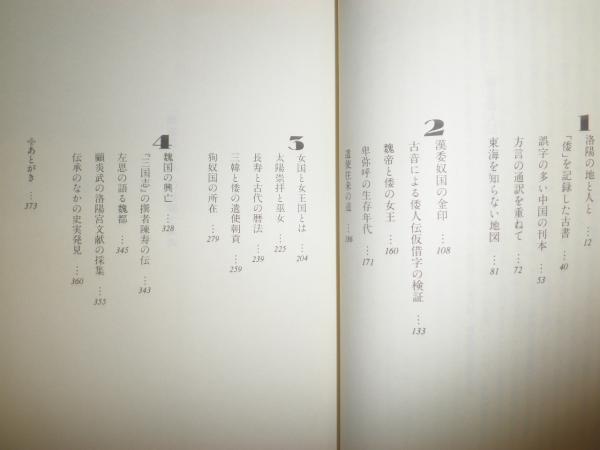 1
洛陽の地と人と …12
「倭」を記録した古書 …40
誤字の多い中国の刊本 …53
方言の通訳を重ねて …72
東海を知らない地図 …81
2
漢委奴国の金印 …108
古音による倭人伝仮借字の検証 …133
魏帝と倭の女王 …160
卑弥呼の生存年代 …171
遣使往来の道 …186
3
女国と女王国とは …204
太陽崇拝と巫女 …225
長寿と古代の暦法 …239
三韓と倭の遣使朝貢 …259
狗奴国の所在 …279
4
魏国の興亡 …328
『三国志』の撰者陳寿の伝 …343
左思の語る魏都 …345
顧炎武の洛陽宮文献の採集 …355
伝承のなかの史実発見 …360
✢あとがき …373